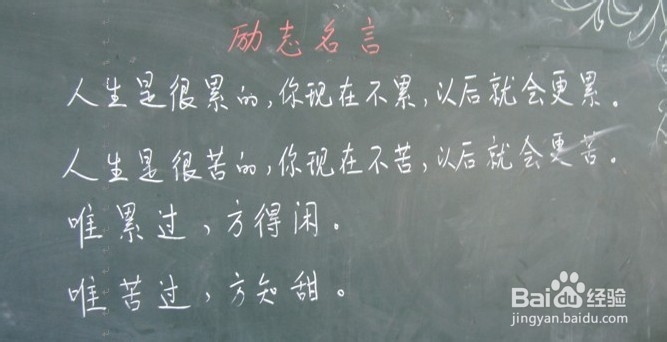 励志名言
人生是很累的，你现在不累，以后就会更累。
人生是很苦的，你现在不苦，以后就会更苦。
唯累过，方得闲。
唯苦过，方知甜。
Baidu经验
jingyan.baidu.com